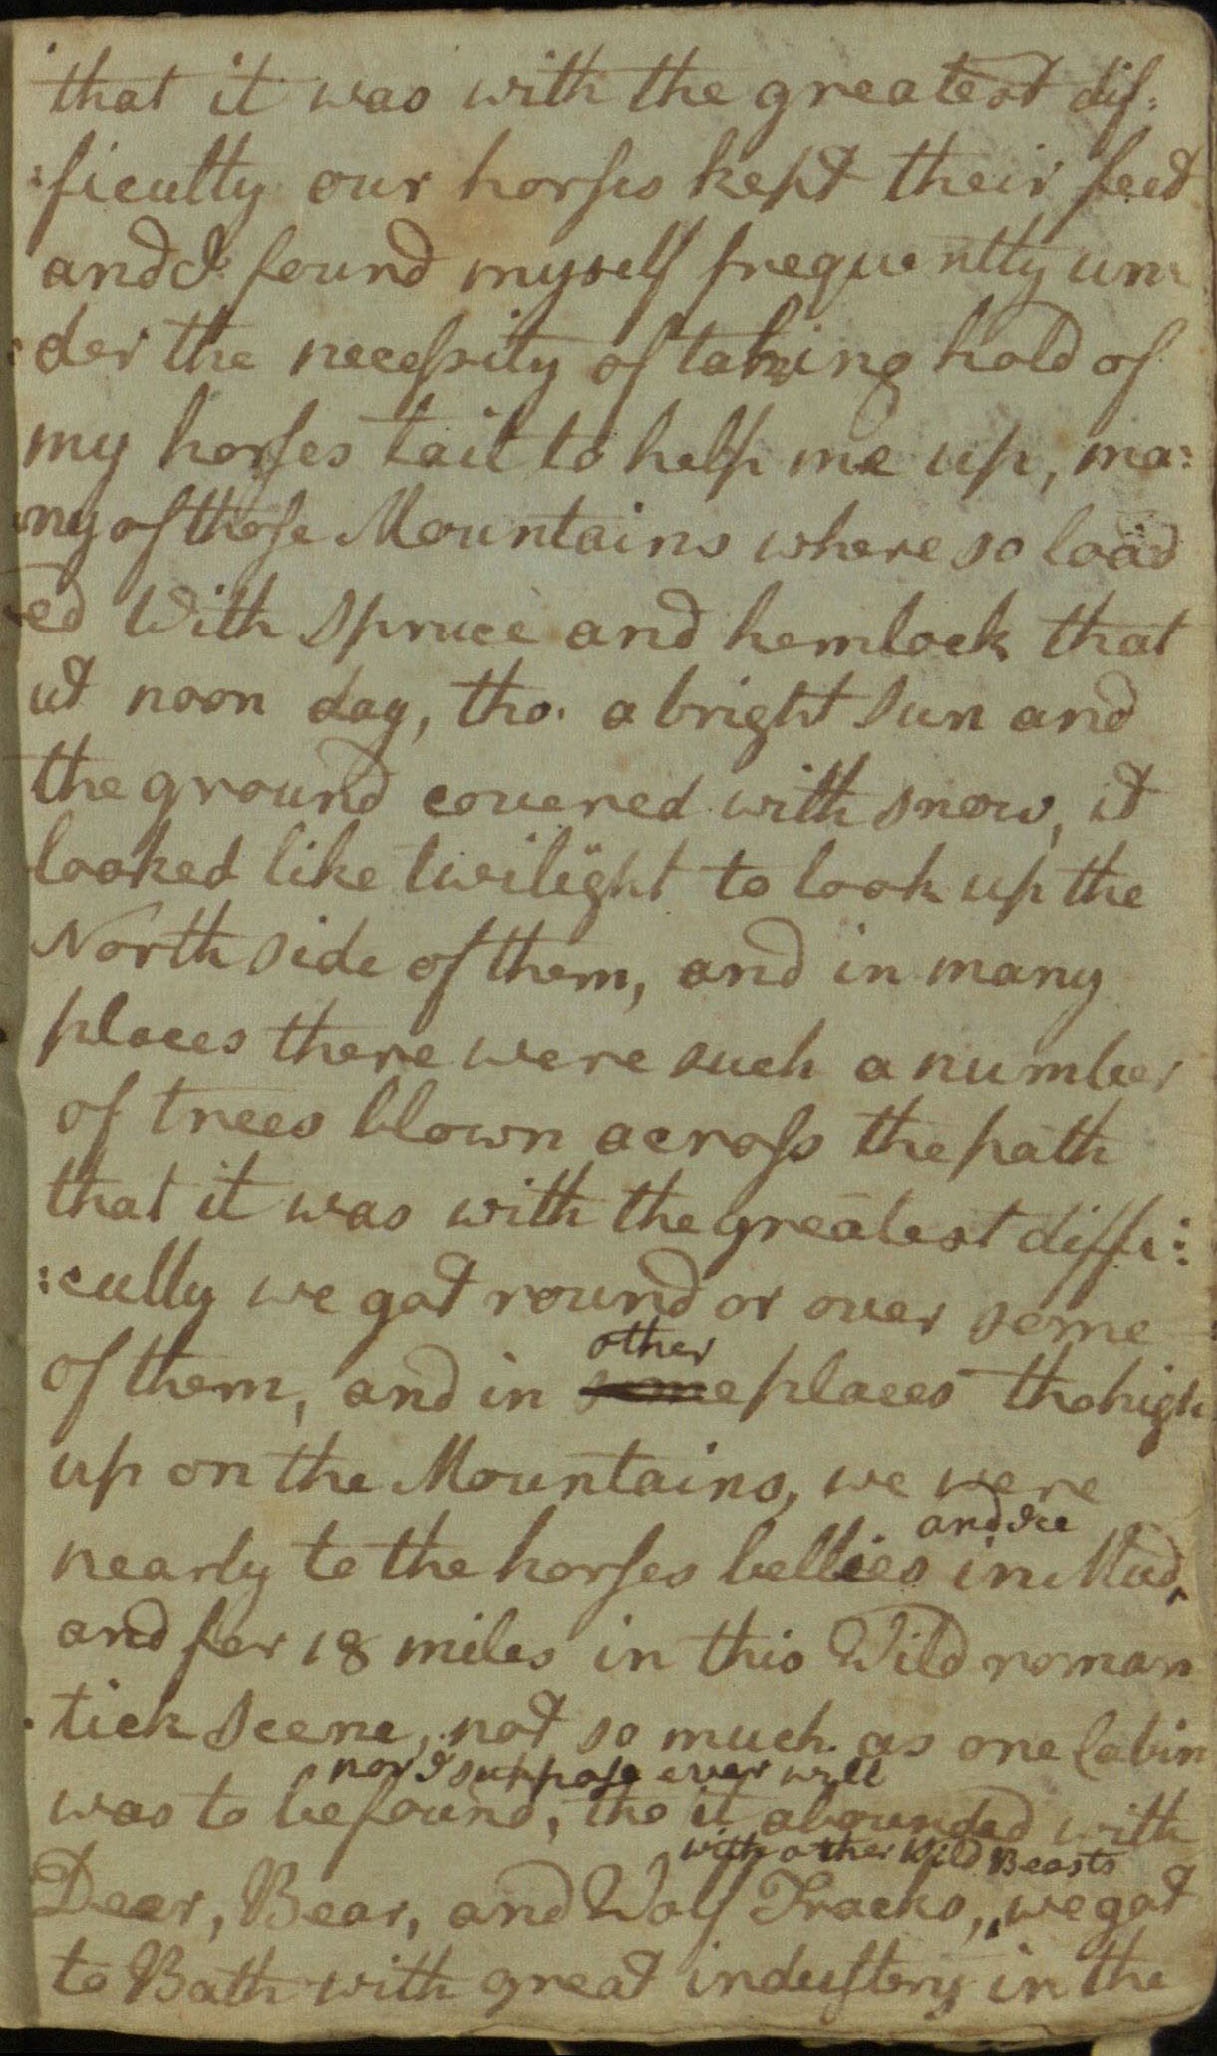 that it was with the greatest dif:
:ficulty our horses kept their feet
and I found myself frequently un:
:der the necessity of taking hold of
my horses tail to help me up, ma:
:ny of those Mountains where so load
ed With Spruce and hemlock that
at noon day, tho. a bright Sun and
the ground covered with snow, it
looked like twilight to look up the
North side of them, and in many
places there were such a number
of trees blown across the path
that it was with the greatest diffi:
:culty we got round or over some
other
of them, and in some places tho high
up on the Mountains, we were
and Ice
nearly to the horses bellies in Mud,
and for 18 miles in this Wild roman
tick Scene, not so much as one Cabin
nor I suppose ever will
was to be found, tho it abounded with
with other Wild Beasts
Dear, Bear, and Wolf Tracks, we got
to Bath with great industry in the